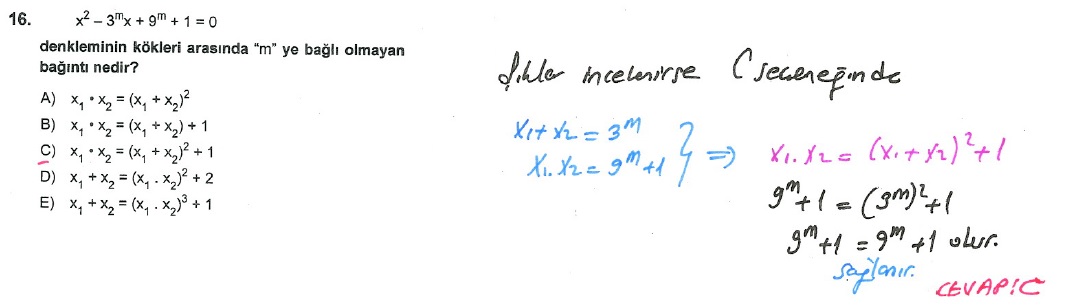 16. x² – 3ᵐx + 9ᵐ + 1 = 0
denkleminin kökleri arasında "m" ye bağlı olmayan
bağıntı nedir?
A) x₁ • x₂ = (x₁ + x₂)²
B) x₁ • x₂ = (x₁ + x₂) + 1
C) x₁ • x₂ = (x₁ + x₂)² + 1
D) x₁ + x₂ = (x₁ . x₂)² + 2
E) x₁ + x₂ = (x₁ . x₂)³ + 1
Şıklar incelenirse C seçeneğinde
x₁ + x₂ = 3ᵐ
x₁ . x₂ = 9ᵐ + 1 } ⇒
x₁ . x₂ = (x₁ + x₂)² + 1
9ᵐ + 1 = (3ᵐ)² + 1
9ᵐ + 1 = 9ᵐ + 1 olur.
sağlanır.
CEVAP: C